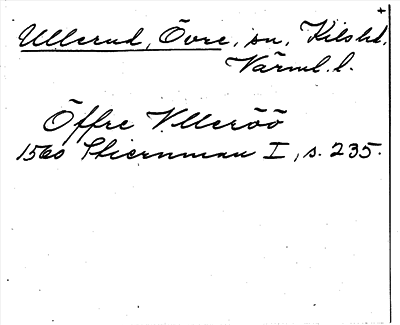 +
Ullerud, Övre, sn, Kils hd,
Värml. l.
Öffre Vlleröö
1560 Stiernman I, s. 235.